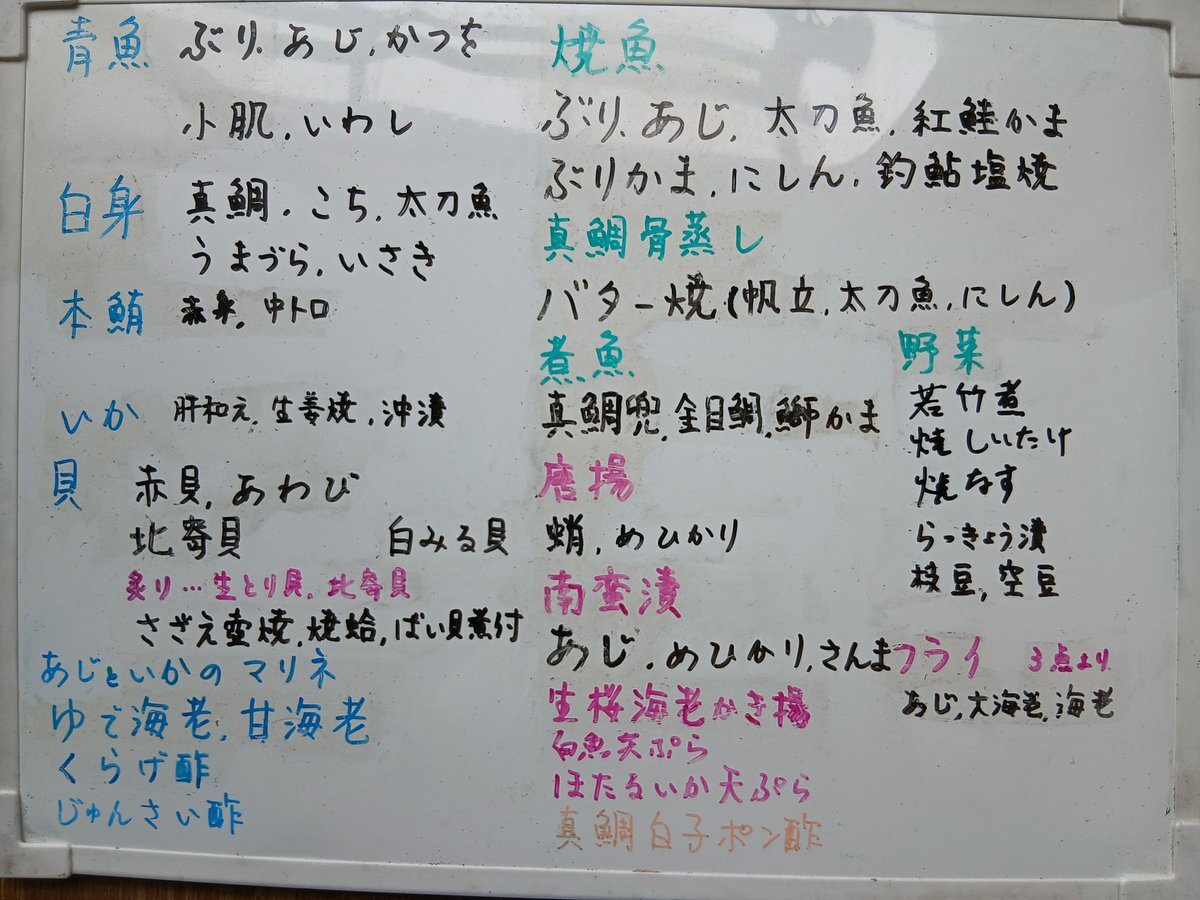 青魚 ぶり、あじ、かつを
小肌、いわし
白身 真鯛、こち、太刀魚
うまづら、いさき
本鮪 赤身、中トロ
いか 肝和え、生姜焼、沖漬
貝 赤貝、あわび
北寄貝 白みる貝
炙り…生とり貝、北寄貝
さざえ壺焼、焼蛤、ばい貝煮付
あじといかのマリネ
ゆで海老、甘海老
くらげ酢
じゅんさい酢
焼魚
ぶり、あじ、太刀魚、紅鮭かま
ぶりかま、にしん、釣鮎塩焼
真鯛骨蒸し
バター焼(帆立、太刀魚、にしん)
煮魚
真鯛兜、金目鯛、鰤かま
唐揚
蛸、めひかり
南蛮漬
あじ、めひかり、さんま
生桜海老かき揚
白魚天ぷら
ほたるいか天ぷら
真鯛白子ポン酢
野菜
若竹煮
焼しいたけ
焼なす
らっきょう漬
枝豆、空豆
フライ 3点より
あじ、大海老、海老